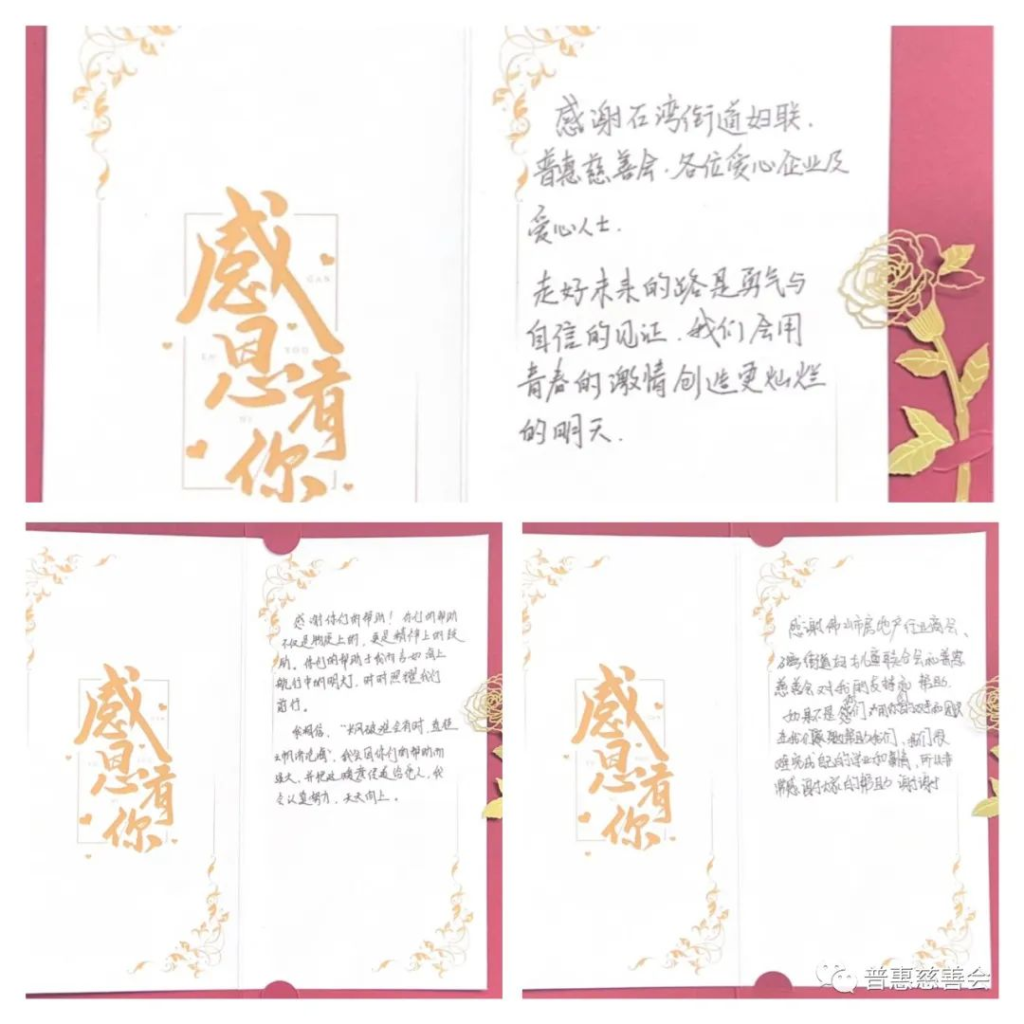 感恩有你
感谢石湾街道妇联.
普惠慈善会.各位爱心企业及
爱心人士.
走好未来的路是勇气与
自信的见证.我们会用
青春的激情创造更灿烂
的明天.
感恩有你
感谢你们的帮助！你们的帮助
不仅是物质上的，更是精神上的鼓
励。你们的帮助于我而言如海上
航行中的明灯，时时照耀我们
前行。
我相信，“长风破浪会有时，直挂
云帆济沧海”。我会因你们的帮助而
强大，并把这
会认真努力，天天向上。
感恩有你
感谢佛山市房地产行业商会、
石湾街道妇女儿童联合会和普惠
慈善会对我
如果不是
我们很
难完成自己的学业和事情，所以非
常感谢大家的帮助 谢谢
普惠慈善会